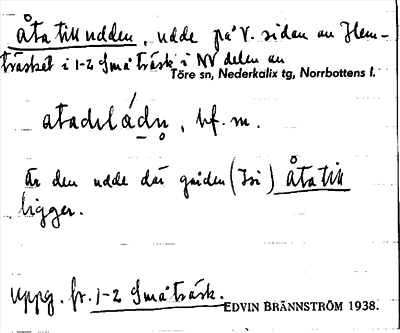 Åtatikudden, udde på V. sidan av Hem-
träsket i 1-2 Småträsk i NV delen av
Töre sn, Nederkalix tg, Norrbottens l.
bf. m.
Är den udde där guiden (Isi) Åtatik
ligger.
Uppg. fr. 1-2 Småträsk.
EDVIN BRÄNNSTRÖM 1938.